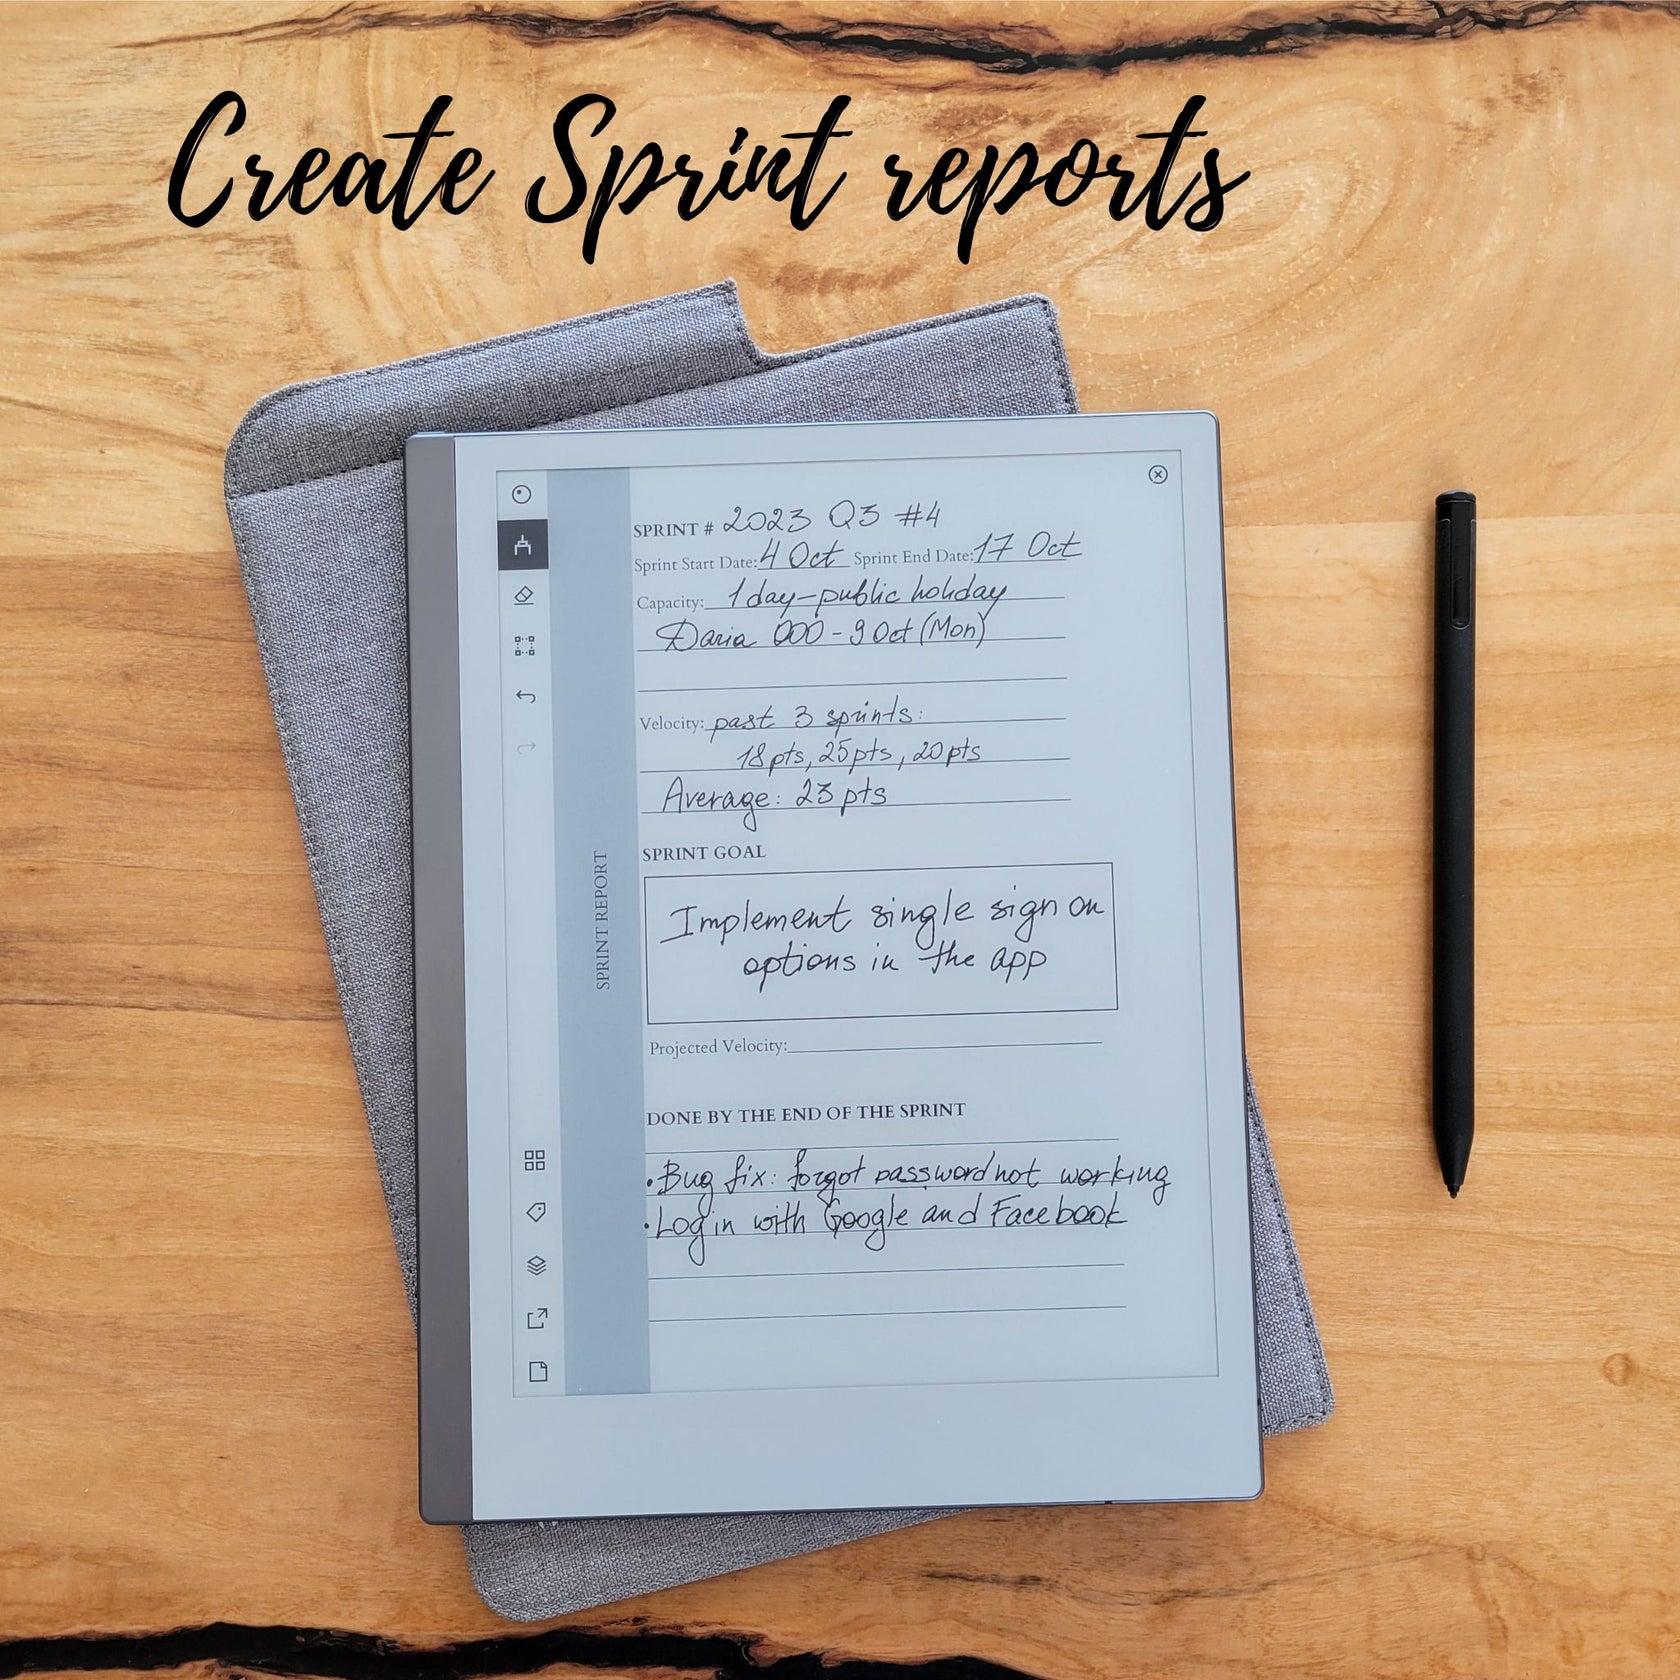 Create Sprint reports
SPRINT # 2023 Q3 #4
Sprint Start Date: 4 Oct Sprint End Date: 17 Oct
Capacity: 1 day-public holiday
Daria OOO - 9 Oct (Mon)
Velocity: past 3 sprints:
18pts, 25pts, 20pts
Average: 23 pts
SPRINT GOAL
Implement single sign on
options in the app
Projected Velocity:
DONE BY THE END OF THE SPRINT
• Bug fix: forgot password not working
• Log in with Google and Facebook
SPRINT REPORT